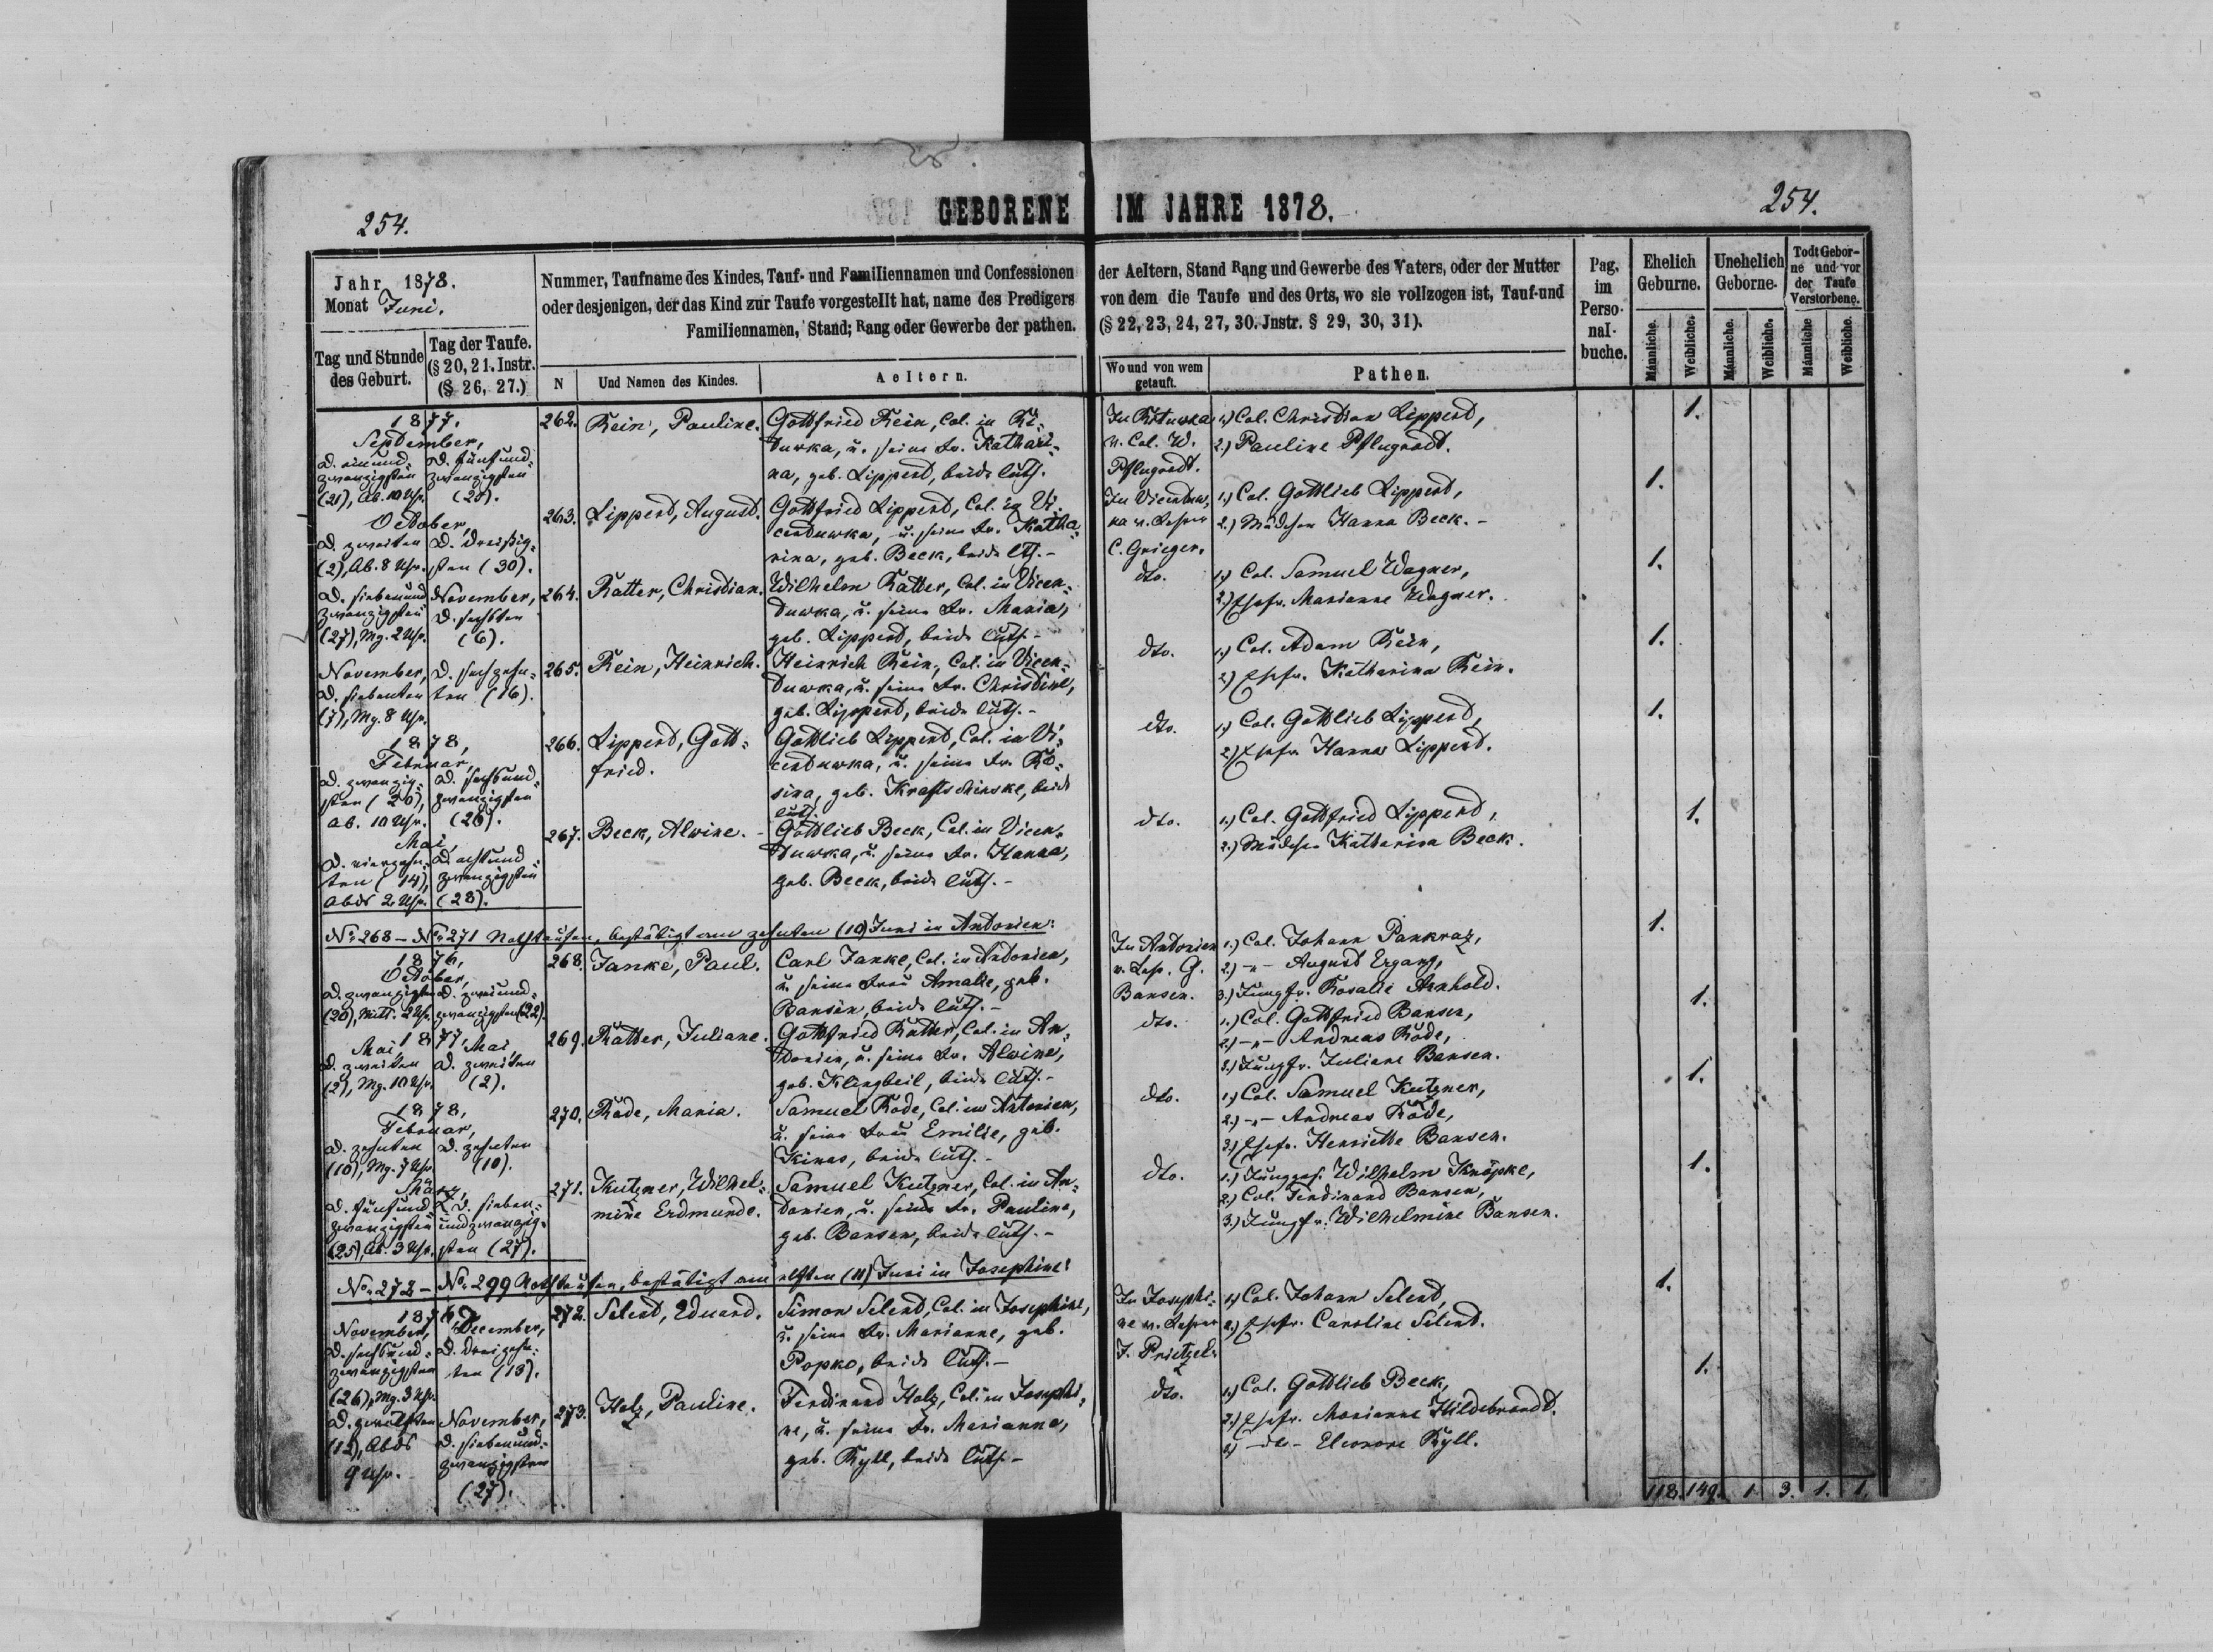 254.
GEBORENE IM JAHRE 1878.
254.
Jahr 1878.
Monat Juni.
Tag und Stunde des Geburt.
Tag der Taufe. (§ 20, 21. Instr. (§ 26, 27.)
Nummer, Taufname des Kindes, Tauf- und Familiennamen und Confessionen
oder desjenigen, der das Kind zur Taufe vorgestellt hat, name des Predigers
Familiennamen, Stand; Rang oder Gewerbe der pathen.
N
Und Namen des Kindes.
Aeltern.
der Aeltern, Stand Rang und Gewerbe des Vaters, oder der Mutter
von dem die Taufe und des Orts, wo sie vollzogen ist, Tauf-und
(§ 22, 23, 24, 27, 30. Jnstr. § 29, 30, 31).
Wo und von wem getauft.
Pathen.
Pag. im Perso-nal-buche.
Ehelich Geburne.
Unehelich Geborne.
Todt Gebor-ne und vor der Taufe Verstorbene.
Männliche.
Weibliche.
Männliche.
Weibliche.
Männliche
Weibliche.
1877.
September,
d. einund- d. fünfund-
zwanzigsten zwanzigsten
(21), Ab. 10 Uhr. (25).
262. Rein, Pauline.
Gottfried Rein, Col. in Ki-
duwka, u. seine Fr. Kathari-
na, geb. Lippert, beide luth.
In Kituwka
v. Col. W.
Pflugradt.
1.) Col. Christian Lippert,
2.) Pauline Pflugradt.
1.
October,
d. zweiten d. dreißig-
(2), Ab. 8 Uhr. sten (30).
263. Lippert, August.
Gottfried Lippert, Col. in Vi-
centuwka, u. seine Fr. Katha-
rina, geb. Beck, beide lth.-
In Vicentuw-
ka v. Lehrer
C. Grieger.
1.) Col. Gottlieb Lippert,
2.) Mädchen Hanna Beck.-
1.
d. siebenund- November,
zwanzigsten d. sechsten
(27), Mg. 2 Uhr. (6).
264. Ratter, Christian.
Wilhelm Ratter, Col. in Vicen-
tuwka, u. seine Fr. Maria,
geb. Lippert, beide luth.-
dto.
1.) Col. Samuel Wagner,
2.) Ehefr. Marianne Wagner.
1.
November, d. sechzehn-
d. siebenten ten (16).
(7), Mg. 8 Uhr.
265. Rein, Heinrich.
Heinrich Rein, Col. in Vicen-
tuwka, u. seine Fr. Christine,
geb. Lippert, beide luth.-
dto.
1.) Col. Adam Rein,
2.) Ehefr. Katharina Rein.
1.
1878,
Februar,
d. zwanzig- d. sechsund-
sten (20), zwanzigsten
Ab. 10 Uhr. (26).
266. Lippert, Gott-
fried.
Gottlieb Lippert, Col. in Vi-
centuwka, u. seine Fr. Ro-
sina, geb. Kraftschinske, beide
luth.
dto.
1.) Col. Gottlieb Lippert,
2.) Ehefr. Hanna Lippert.
1.
Mai,
d. vierzehn- d. achtund-
ten (14), zwanzigsten
Abds 2 Uhr. (28).
267. Beck, Alwine.-
Gottlieb Beck, Col. in Vicen-
tuwka, u. seine Fr. Hanna,
geb. Beck, beide luth.-
dto.
1.) Col. Gottfried Lippert,
2.) Mädchen Katharina Beck.
1.
No. 268 - No. 271 Nothtaufen, bestätigt am zehnten (10) Juni in Antonien:
1876,
October,
d. zwanzigsten d. zweiund-
(20), Mitt. 2 Uhr. zwanzigsten (22).
268. Janke, Paul.
Carl Janke, Col. in Antonien,
u. seine Frau Amalie, geb.
Bansen, beide luth.-
In Antonien
v. Lehr. G.
Bansen.
1.) Col. Johann Pankraz,
2.) -"- August Ergang,
3.) Jungfr. Rosalie Arnhold.
1.
1877,
Mai Mai
d. zweiten d. zweiten
(2), Mg. 10 Uhr. (2).
269. Ratter, Juliane.
Gottfried Ratter, Col. in An-
tonien, u. seine Fr. Alwine,
geb. Klingbeil, beide luth.-
dto.
1.) Col. Gottfried Bansen,
2.) -"- Andreas Rode,
3.) Jungfr. Juliane Bansen.
1.
1878,
Februar,
d. zehnten d. zehnten
(10), Mg. 7 Uhr. (10).
270. Rode, Maria.
Samuel Rode, Col. in Antonien,
u. seine Frau Emilie, geb.
Kinas, beide luth.-
dto.
1.) Col. Samuel Kutzner,
2.) -"- Andreas Rode,
3.) Ehefr. Henriette Bansen.
1.
März,
d. fünfund- d. sieben-
zwanzigsten undzwanzig-
(25), Ab. 3 Uhr. sten (27).
271. Kutzner, Wilhel-
mine Erdmunde.
Samuel Kutzner, Col. in An-
tonien, u. seine Fr. Pauline,
geb. Bansen, beide luth.-
dto.
1.) Jungges. Wilhelm Knöpke,
2.) Col. Ferdinand Bansen,
3.) Jungfr. Wilhelmine Bansen.
1.
No. 272 - No. 299 Nothtaufen, bestätigt am elften (11) Juni in Josephine:
November, December,
d. sechsund- d. dreizehn-
zwanzigsten ten (13).
(26), Mg. 3 Uhr.
272. Selent, Eduard.
Simon Selent, Col. in Josephine,
u. seine Fr. Marianne, geb.
Popko, beide luth.-
In Josephi-
ne v. Lehrer
J. Prietzel.
1.) Col. Johann Selent,
2.) Ehefr. Caroline Selent.
1.
d. zwölften November,
(12), Abds d. siebenund-
9 Uhr. zwanzigsten
(27).
273. Holz, Pauline.
Ferdinand Holz, Col. in Josephi-
ne, u. seine Fr. Marianna,
geb. Ryll, beide luth.-
dto.
1.) Col. Gottlieb Beck,
2.) Ehefr. Marianne Hildebrandt.
3.) -dto- Eleonore Ryll.
1.
118. 149. 1. 3. 1. 1.